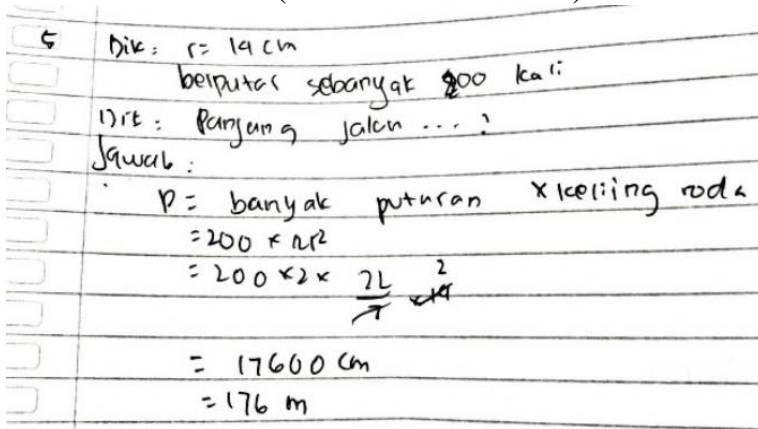 5 Dik: r = 14 cm
berputar sebanyak 200 kali
Dit: Panjang jalan ... ?
Jawab:
P = banyak putaran x keliling roda
= 200 x πr²
= 200 x 2 x 22/7 x 14 2
= 17600 cm
= 176 m